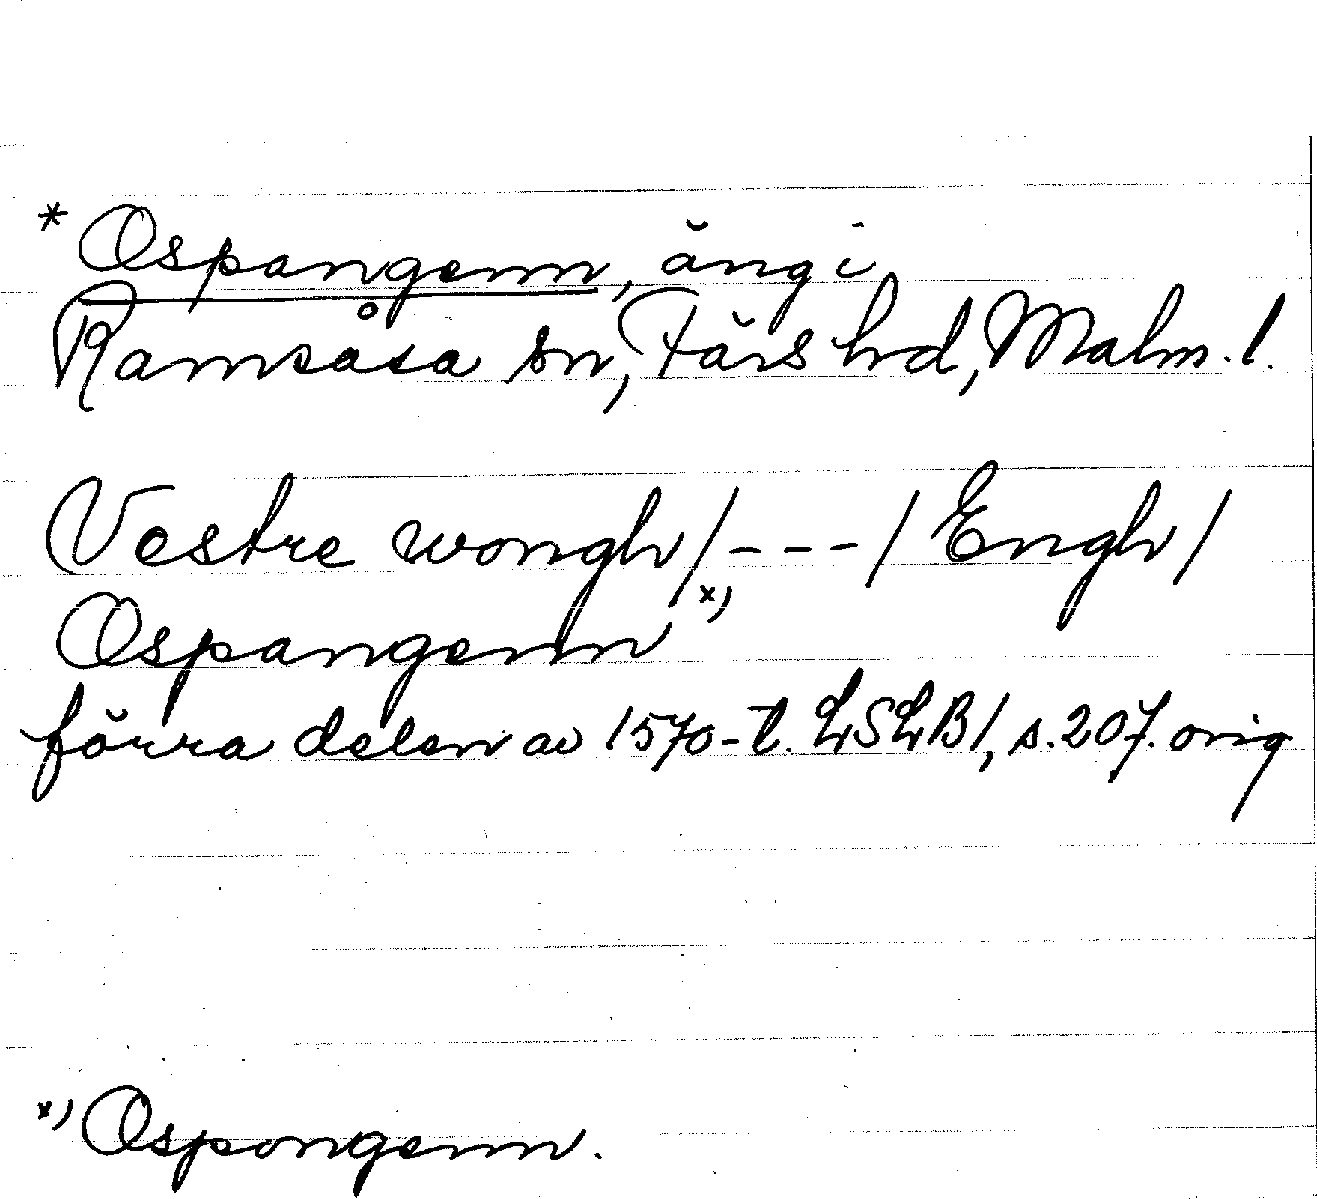 * Ospangenn, äng i
Ramsåsa sn, Färs hrd, Malm. l.
Vestre wongh / - - - / Engh /
Ospangenn x)
förra delen av 1570-t. LSLB1, s. 207. orig
x) Ospongenn.